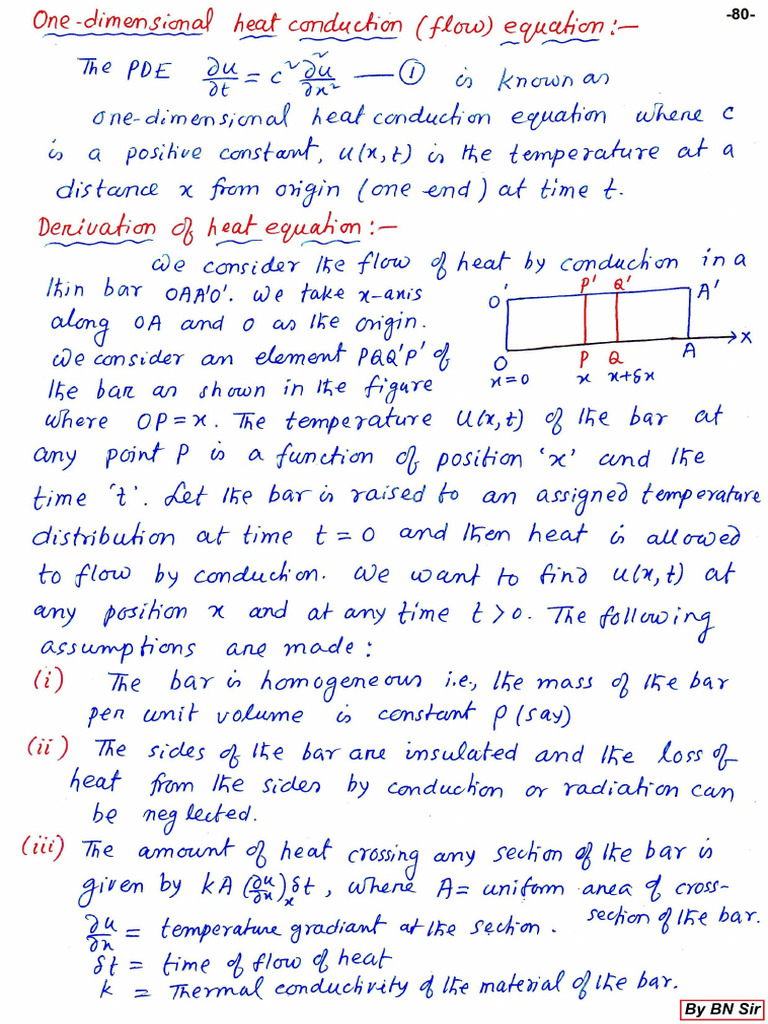 One-dimensional heat conduction (flow) equation :-
-80-
The PDE ∂u/∂t = c² ∂²u/∂x² — ① is known as
one-dimensional heat conduction equation where c
is a positive constant, u(x,t) is the temperature at a
distance x from origin (one end) at time t.
Derivation of heat equation :-
We consider the flow of heat by conduction in a
thin bar OAA'O'. We take x-axis
along OA and O as the origin.
We consider an element PQQ'P' of
the bar as shown in the figure
O' P' Q' A'
O P Q A X
x=0 x x+δx
where OP = x. The temperature u(x,t) of the bar at
any point P is a function of position 'x' and the
time 't'. Let the bar is raised to an assigned temperature
distribution at time t = 0 and then heat is allowed
to flow by conduction. We want to find u(x,t) at
any position x and at any time t > 0. The following
assumptions are made :
(i) The bar is homogeneous i.e., the mass of the bar
per unit volume is constant ρ (say)
(ii) The sides of the bar are insulated and the loss of
heat from the sides by conduction or radiation can
be neglected.
(iii) The amount of heat crossing any section of the bar is
given by kA (∂u/∂x)ₓ δt , where A = uniform area of cross-
section of the bar.
∂u/∂x = temperature gradiant at the section.
δt = time of flow of heat
k = Thermal conductivity of the material of the bar.
By BN Sir